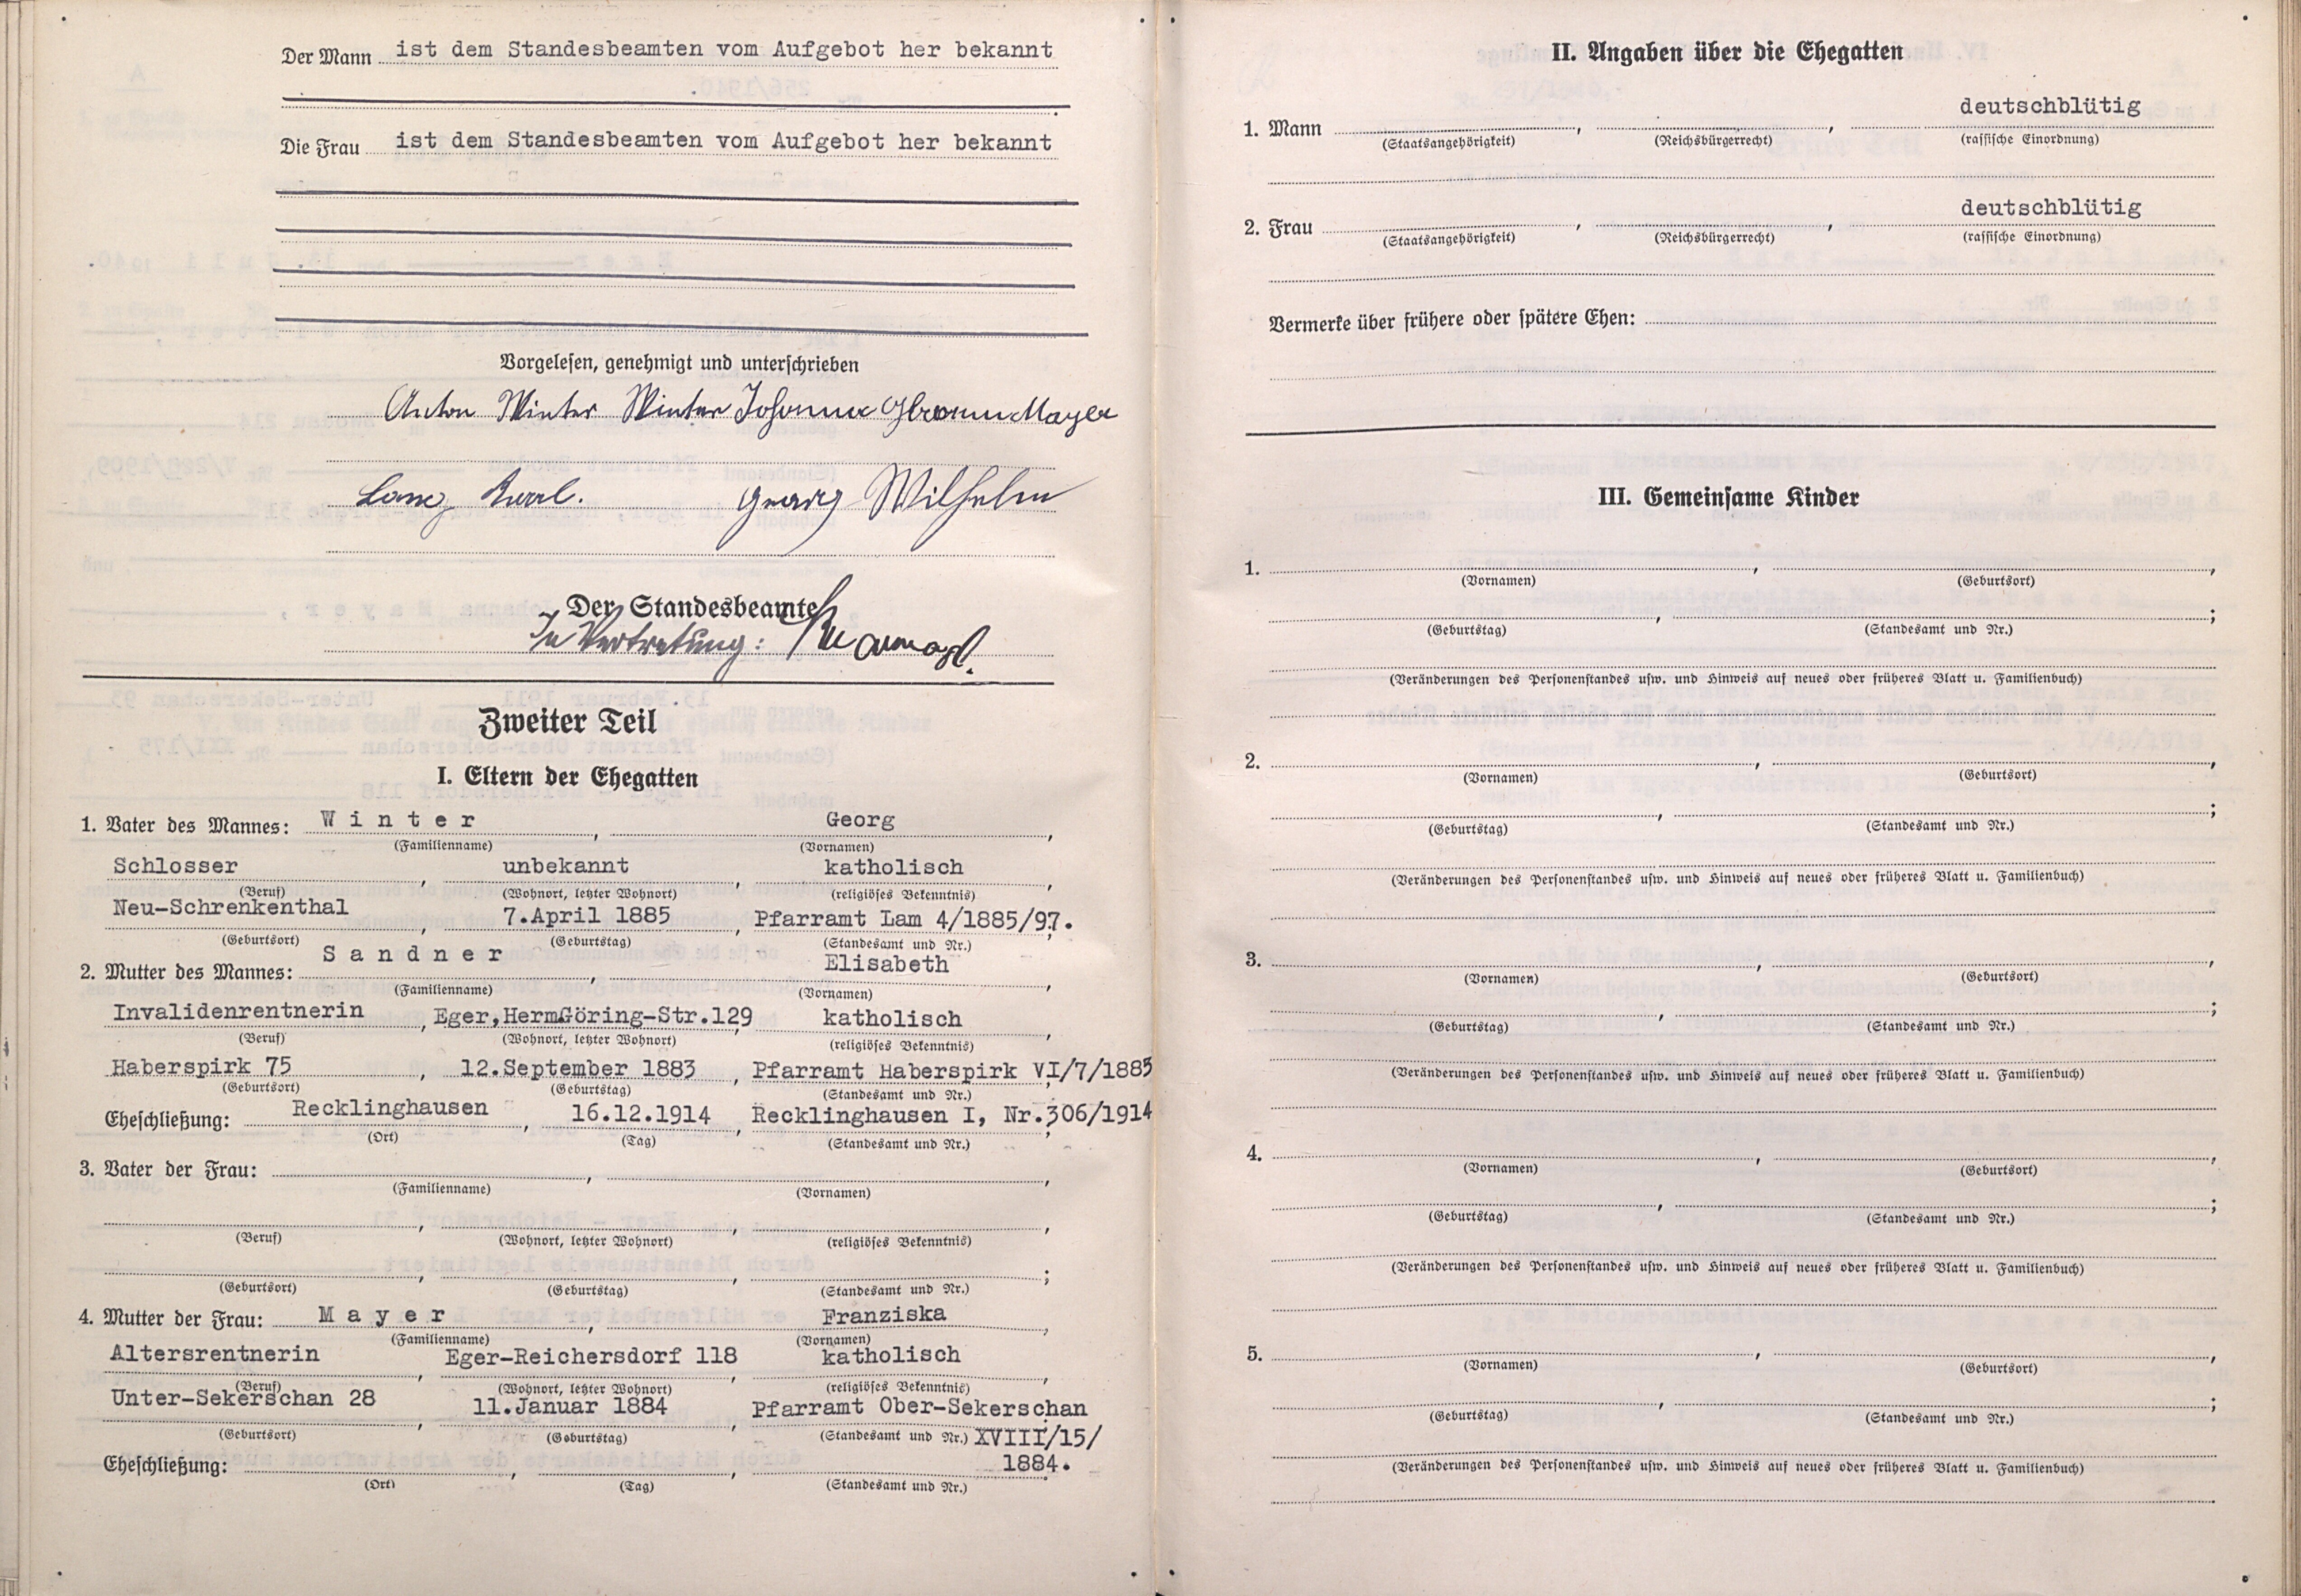 Der Mann ist dem Standesbeamten vom Aufgebot her bekannt
Die Frau ist dem Standesbeamten vom Aufgebot her bekannt
Vorgelesen, genehmigt und unterschrieben
Anton Winter Winter Johanna Mayer
Lang Karl. Georg Wilhelm
Der Standesbeamte
In Vertretung:
Zweiter Teil
I. Eltern der Ehegatten
1. Vater des Mannes: Winter, Georg,
(Familienname) (Vornamen)
Schlosser, unbekannt, katholisch,
(Beruf) (Wohnort, letzter Wohnort) (religiöses Bekenntnis)
Neu-Schrenkenthal, 7.April 1885, Pfarramt Lam 4/1885/97.;
(Geburtsort) (Geburtstag) (Standesamt und Nr.)
2. Mutter des Mannes: Sandner, Elisabeth,
(Familienname) (Vornamen)
Invalidenrentnerin, Eger,HermGöring-Str.129, katholisch,
(Beruf) (Wohnort, letzter Wohnort) (religiöses Bekenntnis)
Haberspirk 75, 12.September 1883, Pfarramt Haberspirk VI/7/1883;
(Geburtsort) (Geburtstag) (Standesamt und Nr.)
Eheschließung: Recklinghausen, 16.12.1914, Recklinghausen I, Nr.306/1914;
(Ort) (Tag) (Standesamt und Nr.)
3. Vater der Frau: , ,
(Familienname) (Vornamen)
, , ,
(Beruf) (Wohnort, letzter Wohnort) (religiöses Bekenntnis)
, , ;
(Geburtsort) (Geburtstag) (Standesamt und Nr.)
4. Mutter der Frau: Mayer, Franziska,
(Familienname) (Vornamen)
Altersrentnerin, Eger-Reichersdorf 118, katholisch,
(Beruf) (Wohnort, letzter Wohnort) (religiöses Bekenntnis)
Unter-Sekerschan 28, 11.Januar 1884, Pfarramt Ober-Sekerschan;
(Geburtsort) (Geburtstag) (Standesamt und Nr.) XVIII/15/
Eheschließung: , , 1884.
(Ort) (Tag) (Standesamt und Nr.)
II. Angaben über die Ehegatten
1. Mann , , deutschblütig
(Staatsangehörigkeit) (Reichsbürgerrecht) (rassische Einordnung)
2. Frau , , deutschblütig
(Staatsangehörigkeit) (Reichsbürgerrecht) (rassische Einordnung)
Vermerke über frühere oder spätere Ehen:
III. Gemeinsame Kinder
1. , ,
(Vornamen) (Geburtsort)
, ;
(Geburtstag) (Standesamt und Nr.)
(Veränderungen des Personenstandes usw. und Hinweis auf neues oder früheres Blatt u. Familienbuch)
2. , ,
(Vornamen) (Geburtsort)
, ;
(Geburtstag) (Standesamt und Nr.)
(Veränderungen des Personenstandes usw. und Hinweis auf neues oder früheres Blatt u. Familienbuch)
3. , ,
(Vornamen) (Geburtsort)
, ;
(Geburtstag) (Standesamt und Nr.)
(Veränderungen des Personenstandes usw. und Hinweis auf neues oder früheres Blatt u. Familienbuch)
4. , ,
(Vornamen) (Geburtsort)
, ;
(Geburtstag) (Standesamt und Nr.)
(Veränderungen des Personenstandes usw. und Hinweis auf neues oder früheres Blatt u. Familienbuch)
5. , ,
(Vornamen) (Geburtsort)
, ;
(Geburtstag) (Standesamt und Nr.)
(Veränderungen des Personenstandes usw. und Hinweis auf neues oder früheres Blatt u. Familienbuch)